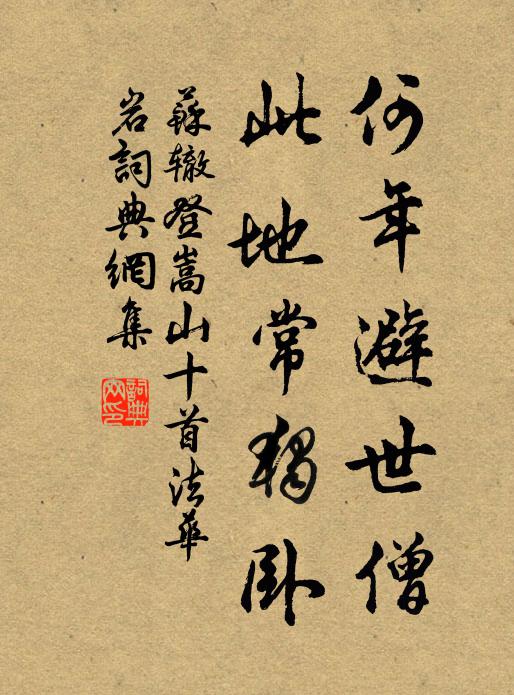 何年避世僧
此地常獨卧
蘇辙登嵩山十首法華
岩詞典網集
詞典